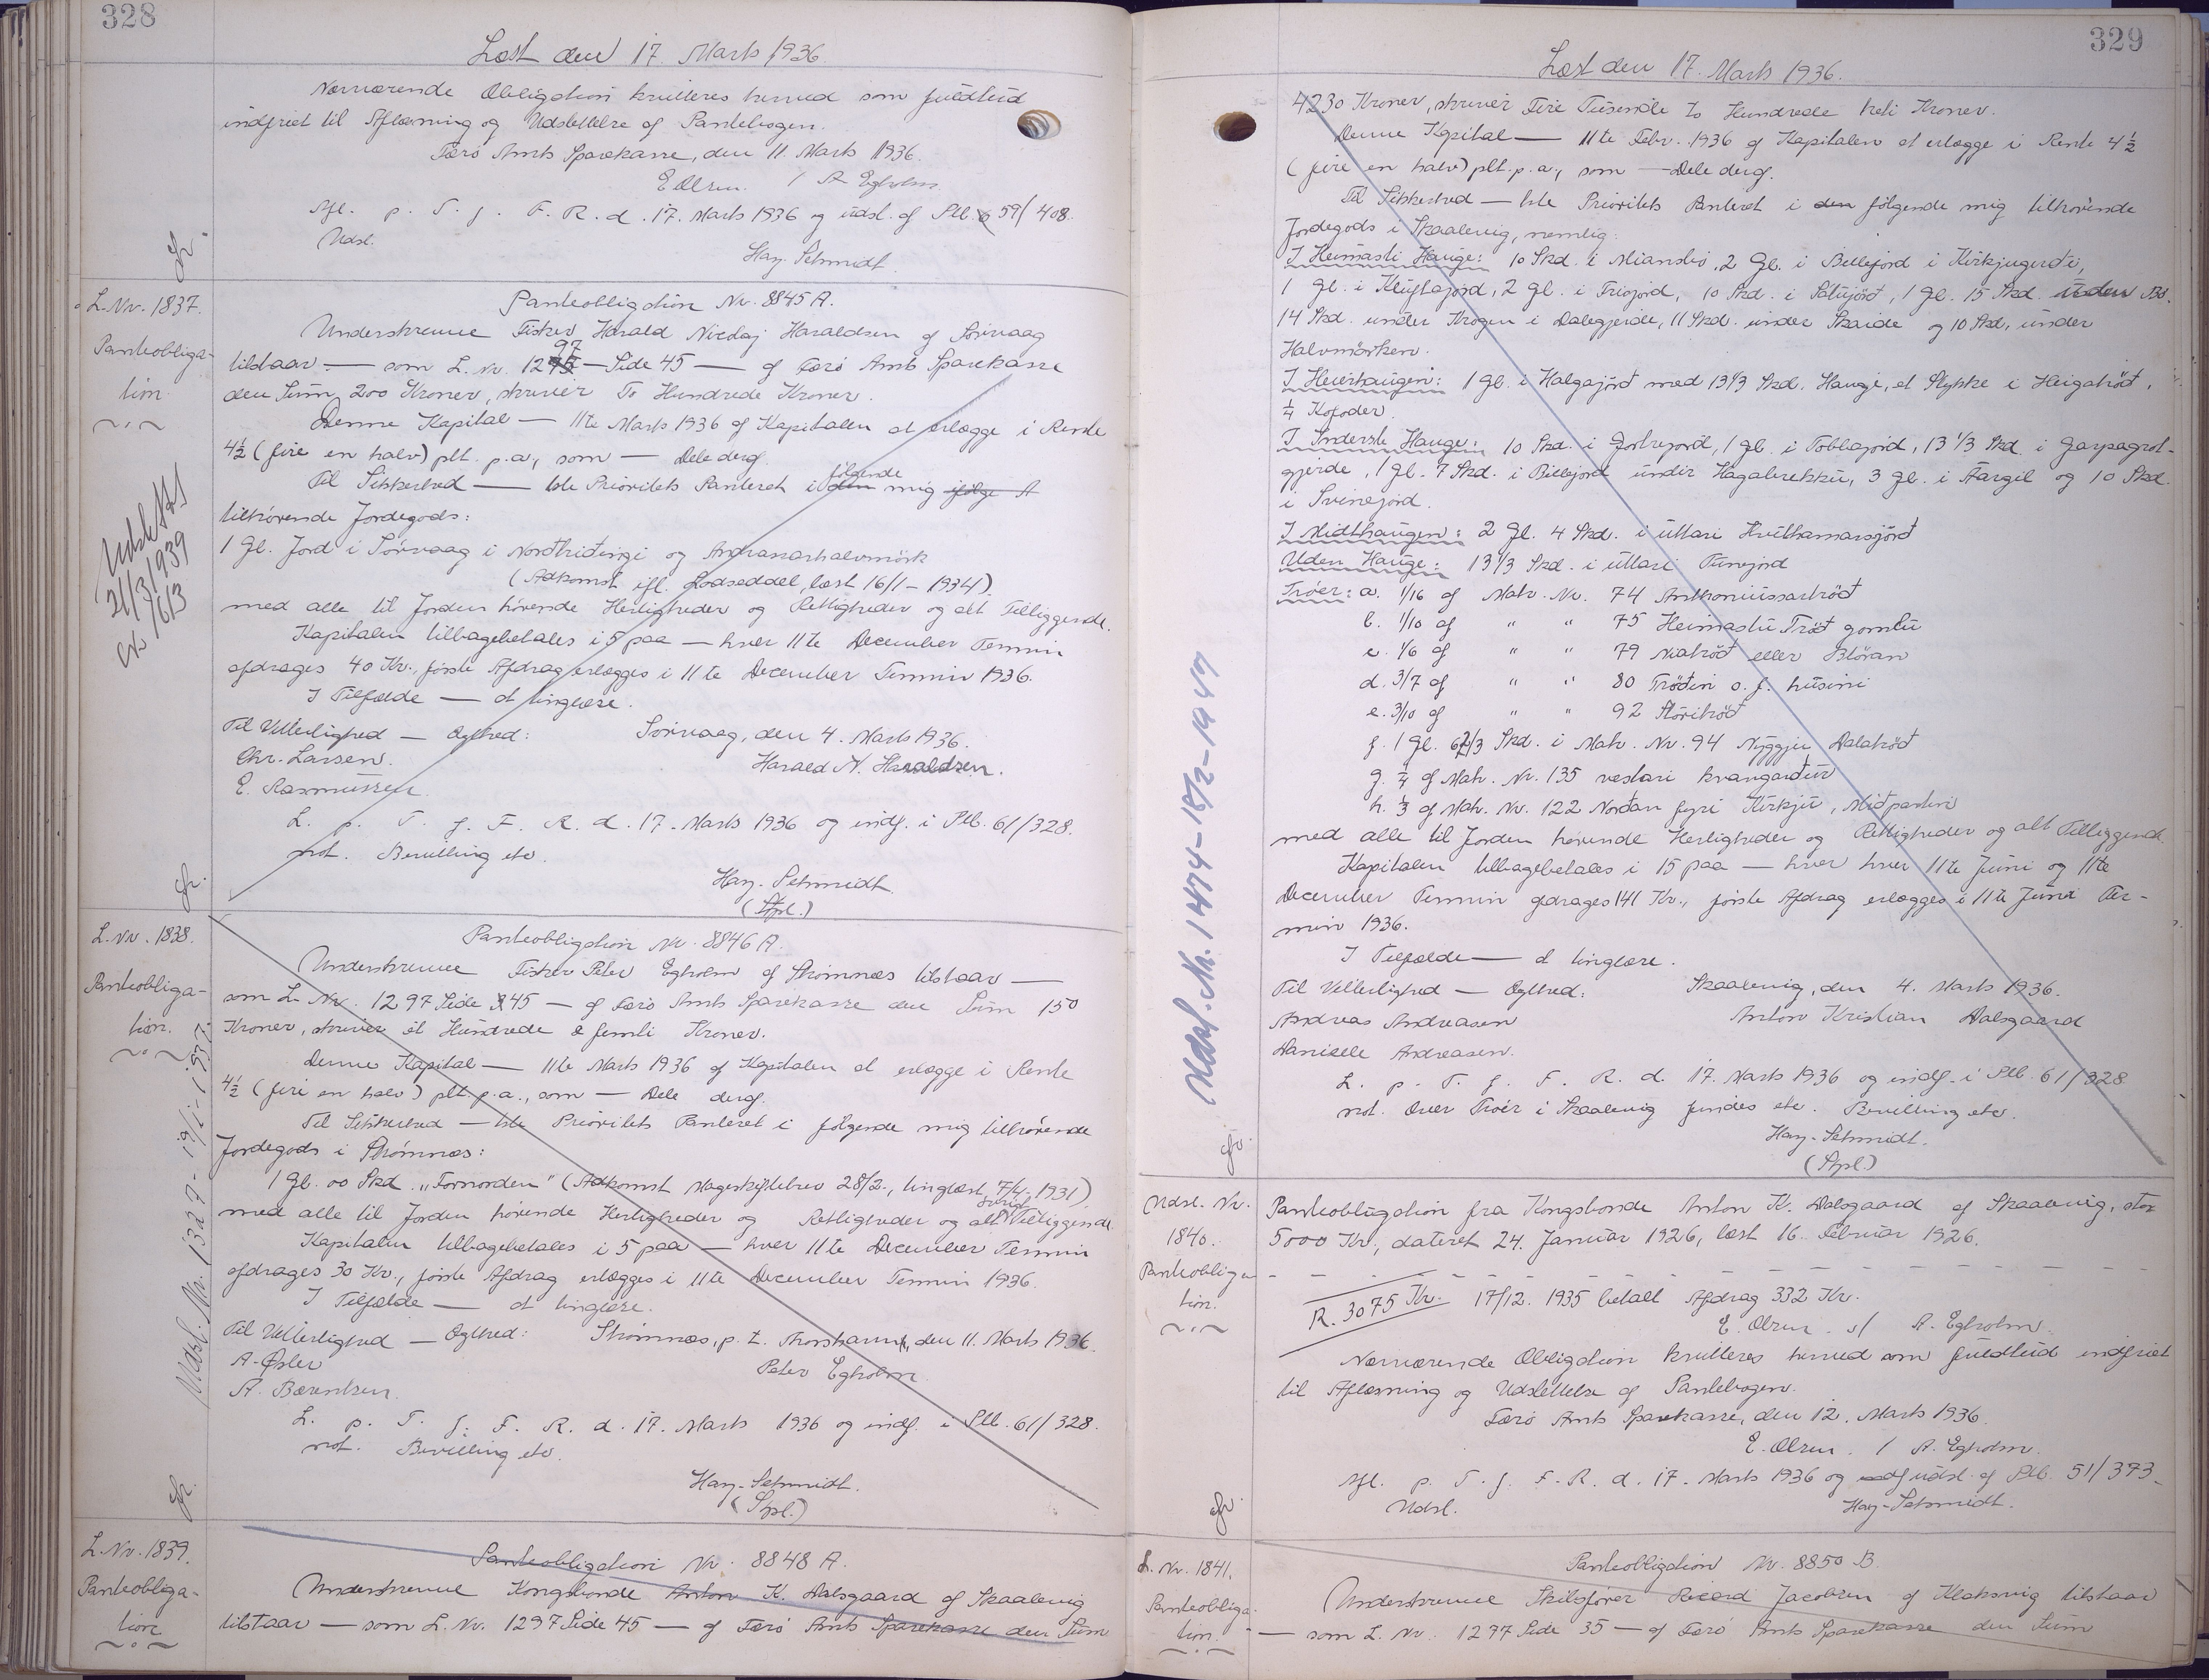 328
Læst den 17. Marts 1936.
Nærværende Obligation kvitteres herved som fuldtud
indfriet til Aflæsning og Udslettelse af Pantebogen.
Færø Amts Sparekasse, den 11. Marts 1936.
E Olsen. / A Egholm.
Afl. p. T. f. F. R. d. 17. Marts 1936 og udsl. af Ptb. 59/408.
Udsl.
Hay-Schmidt.
L. Nr. 1837.
Pantobliga-
tion.
Udslettet
21/3 1939
Panteobligation Nr. 8845 A.
Underskrevne Fisker Harald Nicolaj Haraldsen af Sørvaag
tilstaar — som L. Nr. 1297 — Side 45 — af Færø Amts Sparekasse
den Sum 200 Kroner, skriver To Hundrede Kroner.
Denne Kapital — 11te Marts 1936 af Kapitalen at erlægge i Rente
4½ (fire en halv) pCt. p.a., som — Dele deraf.
Til Sikkerhed — 1ste Prioritets Panteret i den følgende mig ifølge A
tilhørende Jordegods:
1 Gl. Jord i Sørvaag i Norðhiðingi og Andrasarhalvmörk
(Adkomst ifl. Lodseddel, læst 16/1 - 1934).
med alle til Jorden hørende Herligheder og Rettigheder og alt Tilliggende.
Kapitalen tilbagebetales i 5 paa — hver 11te December Termin
afdrages 40 Kr., første Afdrag erlægges i 11te December Termin 1936.
I Tilfælde — at tinglæse.
Til Vitterlighed — Ægthed: Sørvaag, den 4. Marts 1936.
Chr. Larsen. Harald N. Haraldsen.
E. Rasmussen.
L. p. T. f. F. R. d. 17. Marts 1936 og indf. i Ptb. 61/328.
not. Bevilling etc.
Hay-Schmidt.
(Spl.)
L. Nr. 1838.
Panteobliga-
tion.
Udsl. Nr. 1329 - 19/1 - 1937.
Panteobligation Nr. 8846 A.
Underskrevne Fisker Peter Egholm af Strømnæs tilstaar —
som L. Nr. 1297 Side 45 — af Færø Amts Sparekasse den Sum 150
Kroner, skriver et Hundrede & femti Kroner.
Denne Kapital — 11te Marts 1936 af Kapitalen at erlægge i Rente
4½ (fire en halv) pCt. p.a., som — Dele deraf.
Til Sikkerhed — 1ste Prioritets Panteret i følgende mig tilhørende
Jordegods i Strømnæs:
1 Gl. 00 Skd. „Fornorden" (Adkomst Mageskiftebrev 28/2., tinglæst 7/4. 1931)
med alle til Jorden hørende Herligheder og Rettigheder og alt øvrigt Tilliggende.
Kapitalen tilbagebetales i 5 paa — hver 11te December Termin
afdrages 30 Kr., første Afdrag erlægges i 11te December Termin 1936.
I Tilfælde — at tinglæse.
Til Vitterlighed — Ægthed: Strømnæs, p. t. Thorshavn, den 11. Marts 1936.
A. Øster Peter Egholm.
A. Bærentsen.
L. p. T. f. F. R. d. 17. Marts 1936 og indf. i Ptb. 61/328.
not. Bevilling etc.
Hay-Schmidt.
(Spl.)
L. Nr. 1839.
Panteobliga-
tion
Panteobligation Nr. 8848 A.
Underskrevne Kongsbonde Anton K. Dalsgaard af Skaalevig
tilstaar — som L. Nr. 1297 Side 45 — af Færø Amts Sparekasse den Sum
329
Læst den 17. Marts 1936.
4230 Kroner, skriver Fire Tusende To Hundrede treti Kroner.
Denne Kapital — 11te Febr. 1936 af Kapitalen at erlægge i Rente 4½
(fire en halv) pCt. p. a., som — Dele deraf.
Til Sikkerhed — 1ste Prioritets Panteret i den følgende mig tilhørende
Jordegods i Skaalevig, nemlig:
I Heimasti Hauge: 10 Skd. i Mianstis, 2 Gl. i Billefjord i Kirkjugerði,
1 Gl. i Kluftajord, 2 Gl. i Triojord, 10 Skd. i Sótujörð, 1 Gl. 15 Skd. uden Bø.
14 Skd. under Krogen i Dalegjerde, 11 Skd. under Skaide og 10 Skd. under
Halvmörken.
I Heierhaugen: 1 Gl. i Halgajörð med 13 1/3 Skd. Hauge, et Stykke i Heigatröð,
¼ Kofoder.
I Inderste Hauge: 10 Skd. i Jortrejord, 1 Gl. i Toblajord, 13 1/3 Skd. i Garpagrot-
gjerde, 1 Gl. 7 Skd. i Billejord undir Hagabrekku, 3 Gl. i Fargil og 10 Skd.
i Svinejord.
I Midthaugen: 2 Gl. 4 Skd. i uttari Hvilhamarsjörð
Uden Hauge: 13 1/3 Skd. i uttari Tunejord
Trøer: a. 1/16 af Matr. Nr. 74 Anthoniussartröð
b. 1/10 af " " 75 Heimastu Tröð gomlu
c. 1/6 af " " 79 Niatröð eller Blöran
d. 3/7 af " " 80 Tröðin o. f. húsini
e. 3/10 af " " 92 Stóritröð
f. 1 Gl. 6 2/3 Skd. i Matr. Nr. 94 Nýggju Dalatröð
g. ¼ af Matr. Nr. 135 vestari kvangarður
h. ⅓ af Matr. Nr. 122 Norðan fyri Kirkju, Miðparturi
med alle til Jorden hørende Herligheder og Rettigheder og alt Tilliggende.
Kapitalen tilbagebetales i 15 paa — hver hver 11te Juni og 11te
December Termin afdrages 141 Kr., første Afdrag erlægges i 11te Juni Ter-
min 1936.
I Tilfælde — at tinglæse.
Til Vitterlighed — Ægthed: Skaalevig, den 4. Marts 1936.
Andreas Andreasen Anton Kristian Dalsgaard
Danielle Andreasen.
L. p. T. f. F. R. d. 17. Marts 1936 og indf. i Ptb. 61/328
not. Over Trøer i Skaalevig fundes etc. Bevilling etc.
Hay-Schmidt.
(Spl.)
Udsl. Nr. 1474 - 18/2 - 1947
Udsl. Nr.
1840.
Panteobliga-
tion.
Panteobligation fra Kongsbonde Anton K. Dalsgaard af Skaalevig, stor
5000 Kr., dateret 24. Januar 1926, læst 16. Februar 1926.
R. 3075 Kr. 17/12. 1935 betalt Afdrag 332 Kr.
E. Olsen. s/ A. Egholm.
Nærværende Obligation kvitteres herved som fuldtud indfriet
til Aflæsning og Udslettelse af Pantebogen.
Færø Amts Sparekasse, den 12. Marts 1936.
E. Olsen. / A. Egholm.
Afl. p. T. f. F. R. d. 17. Marts 1936 og udsl. af Ptb. 51/373.
Udsl. Hay-Schmidt.
L. Nr. 1841.
Panteobliga-
tion.
Panteobligation Nr. 8850 B.
Underskrevne Skibsfører Ricard Jacobsen af Klaksvig tilstaar
— som L. Nr. 1297 Side 35 — af Færø Amts Sparekasse den Sum